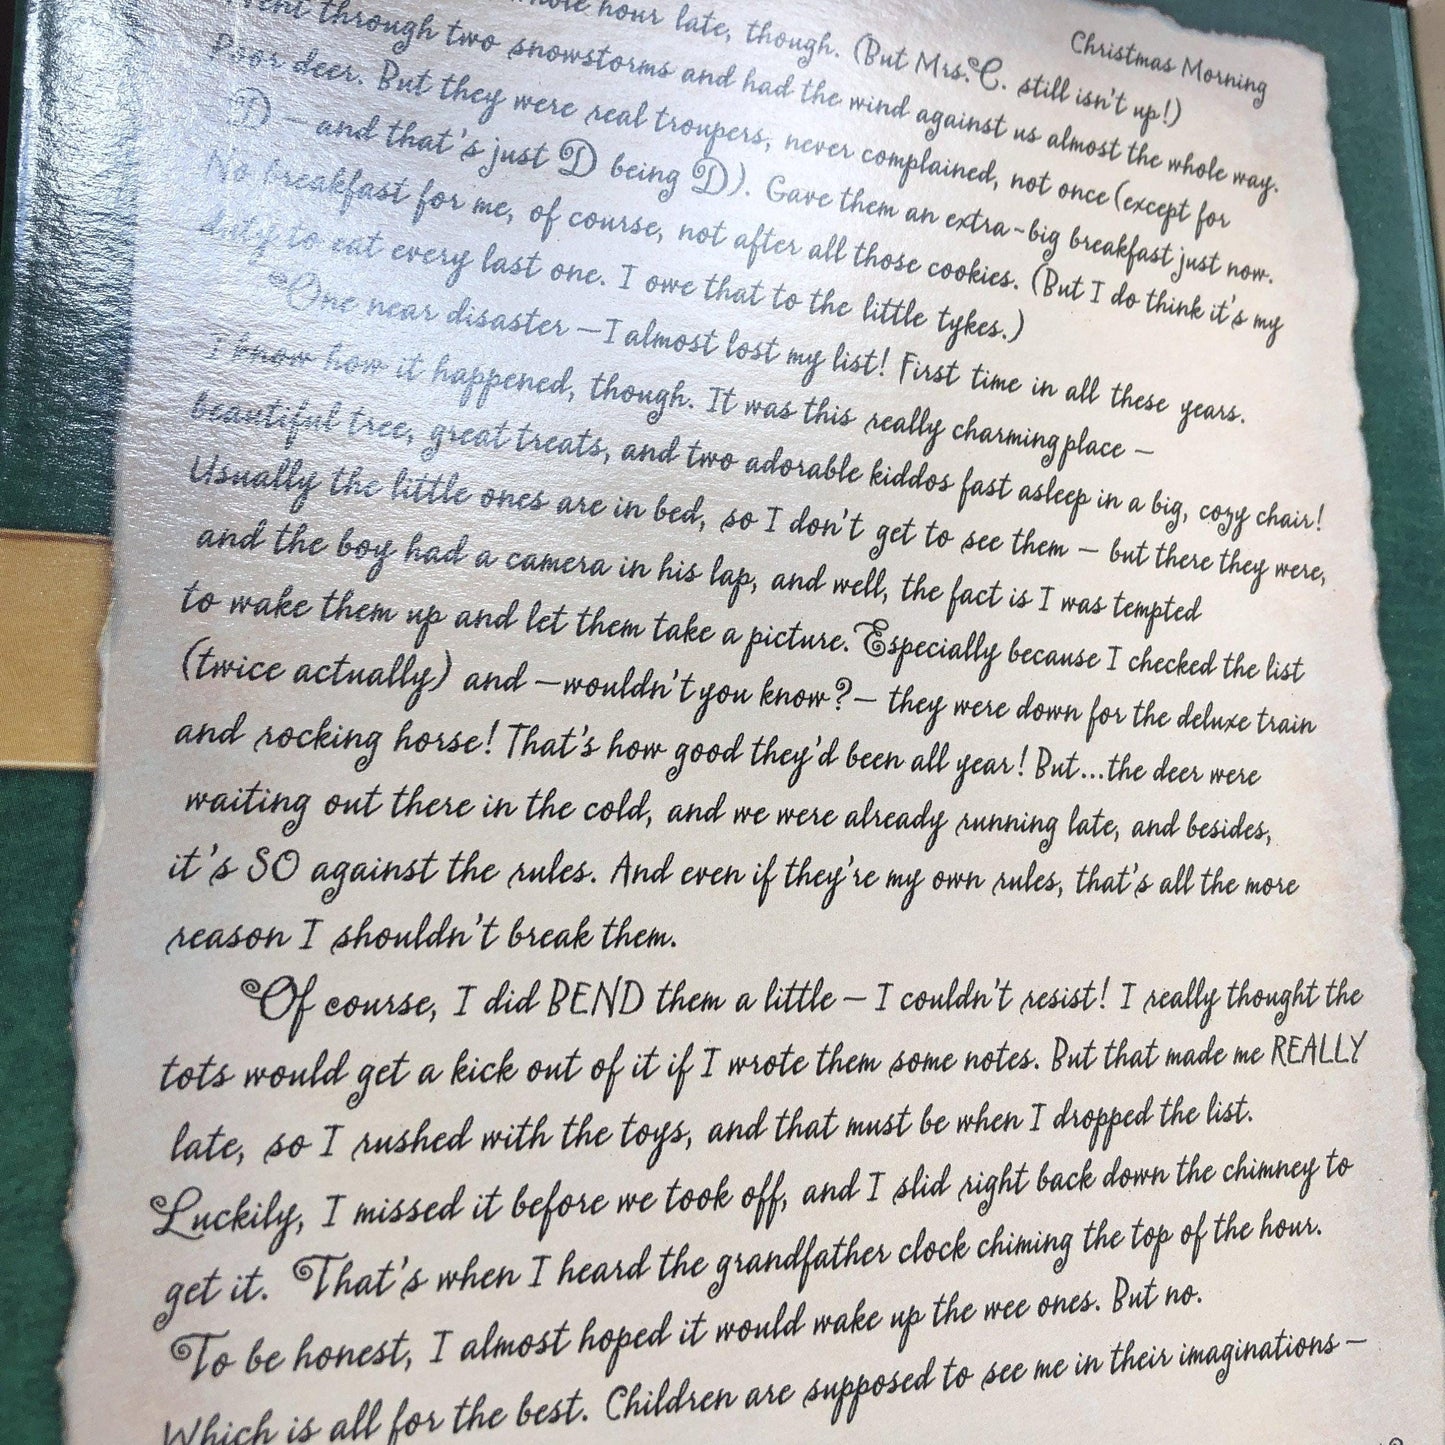 Christmas Morning
hour late, though. (But Mrs. C. still isn't up!)
Went through two snowstorms and had the wind against us almost the whole way.
Poor deer. But they were real troupers, never complained, not once (except for
D – and that's just D being D). Gave them an extra-big breakfast just now.
No breakfast for me, of course, not after all those cookies. (But I do think it's my
duty to eat every last one. I owe that to the little tykes.)
One near disaster – I almost lost my list! First time in all these years.
I know how it happened, though. It was this really charming place –
beautiful tree, great treats, and two adorable kiddos fast asleep in a big, cozy chair!
Usually the little ones are in bed, so I don't get to see them – but there they were,
and the boy had a camera in his lap, and well, the fact is I was tempted
to wake them up and let them take a picture. Especially because I checked the list
(twice actually) and – wouldn't you know? – they were down for the deluxe train
and rocking horse! That's how good they'd been all year! But...the deer were
waiting out there in the cold, and we were already running late, and besides,
it's SO against the rules. And even if they're my own rules, that's all the more
reason I shouldn't break them.
Of course, I did BEND them a little – I couldn't resist! I really thought the
tots would get a kick out of it if I wrote them some notes. But that made me REALLY
late, so I rushed with the toys, and that must be when I dropped the list.
Luckily, I missed it before we took off, and I slid right back down the chimney to
get it. That's when I heard the grandfather clock chiming the top of the hour.
To be honest, I almost hoped it would wake up the wee ones. But no.
Which is all for the best. Children are supposed to see me in their imaginations –